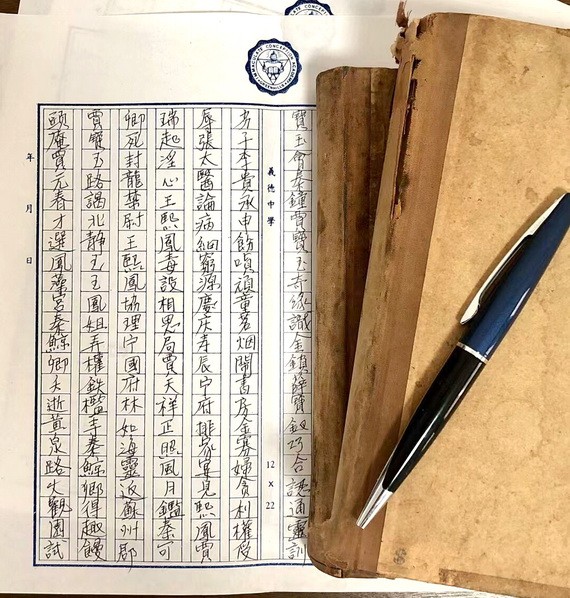 寶玉會秦鐘賈寶玉奇緣識金鎖薛寶釵巧合認通靈訓
義德中學
12 x 22
劣子李貴承申飭嗔頑童茗烟鬧書房金寡婦貪利權受
辱張太醫論病細窮源慶庆寿辰宁府排家宴見熙鳳賈
瑞起淫心王熙鳳毒設相思局賈天祥正照風月鑑秦可
卿死封龍禁尉王熙鳳協理宁國府林如海靈返蘇州郡
賈寶玉路謁北静王王鳳姐弄權鉄檻寺秦鯨卿得趣饅
頭庵賈元春才選鳳藻宮秦鯨卿夭逝黄泉路大觀園試
年 月 日